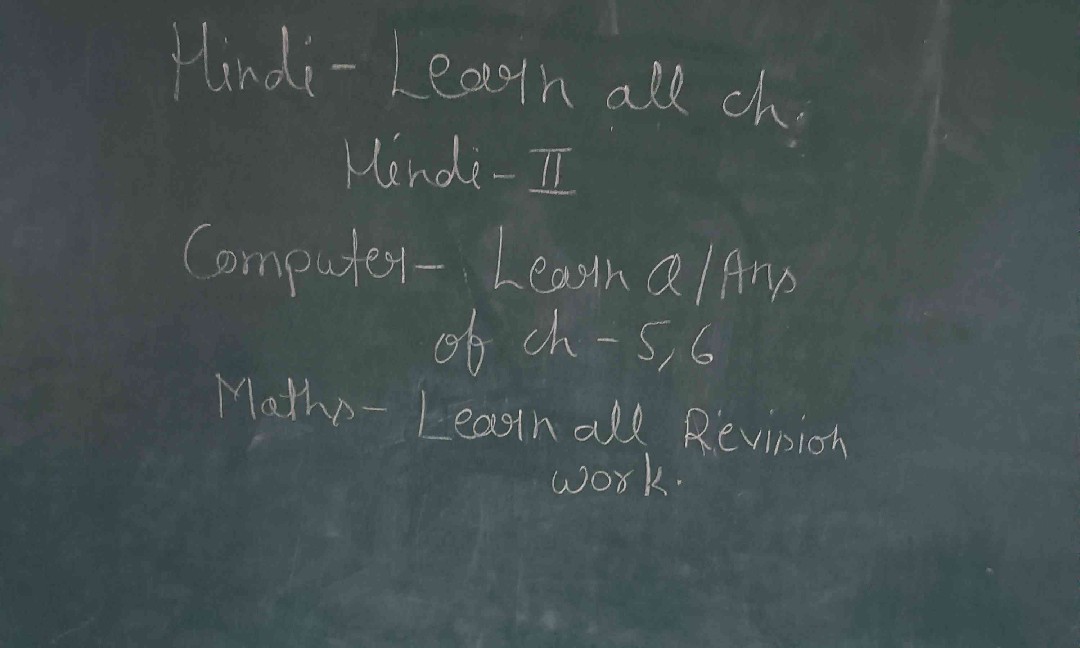 Hindi - Learn all ch.
Hindi - II
Computer - Learn Q/Ans
of ch - 5, 6
Maths - Learn all Revision
work.